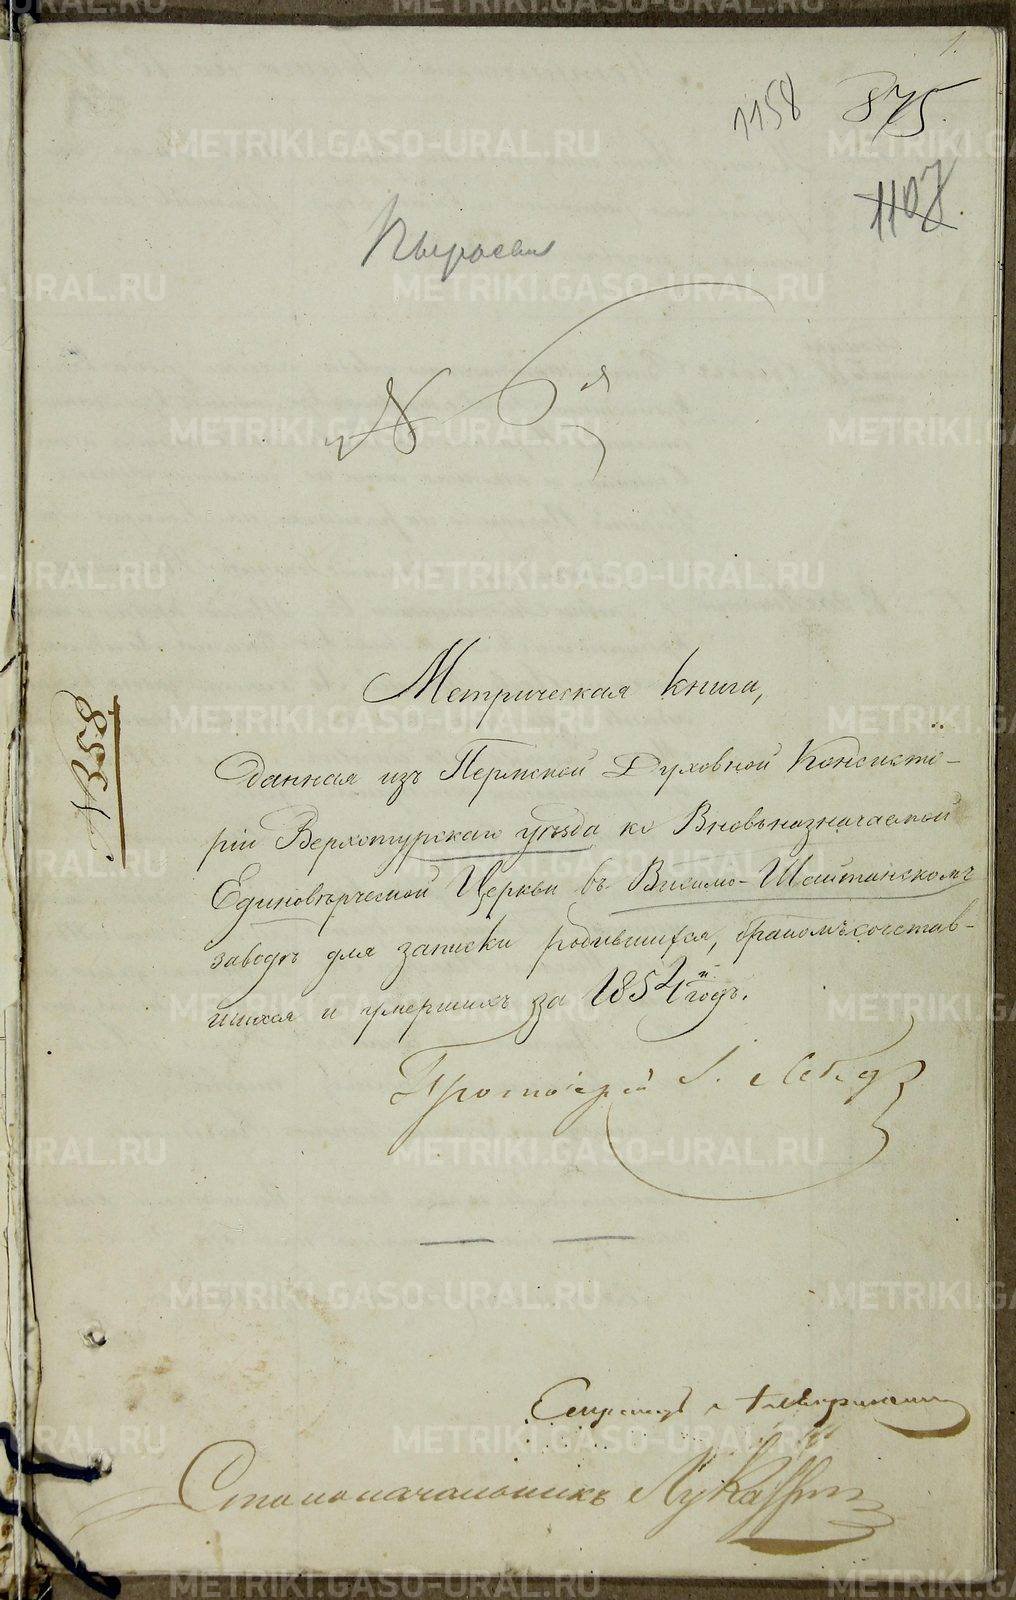 1.
1158 875.
1107.
№ 6й
Метрическая книга,
данная изъ Пермской Духовной Консисто-
ріи Верхотурскаго уѣзда къ Вновьназначаемой
Единовѣрческой Церкви въ Висимо-Шайтанскомъ
заводѣ для записки родившихся, бракомъ сочетав-
шихся и умершихъ за 1854й годъ.
№ 358
Протоіерей І.
Секретарь
Столоначальникъ Лукан
METRIKI.GASO-URAL.RU